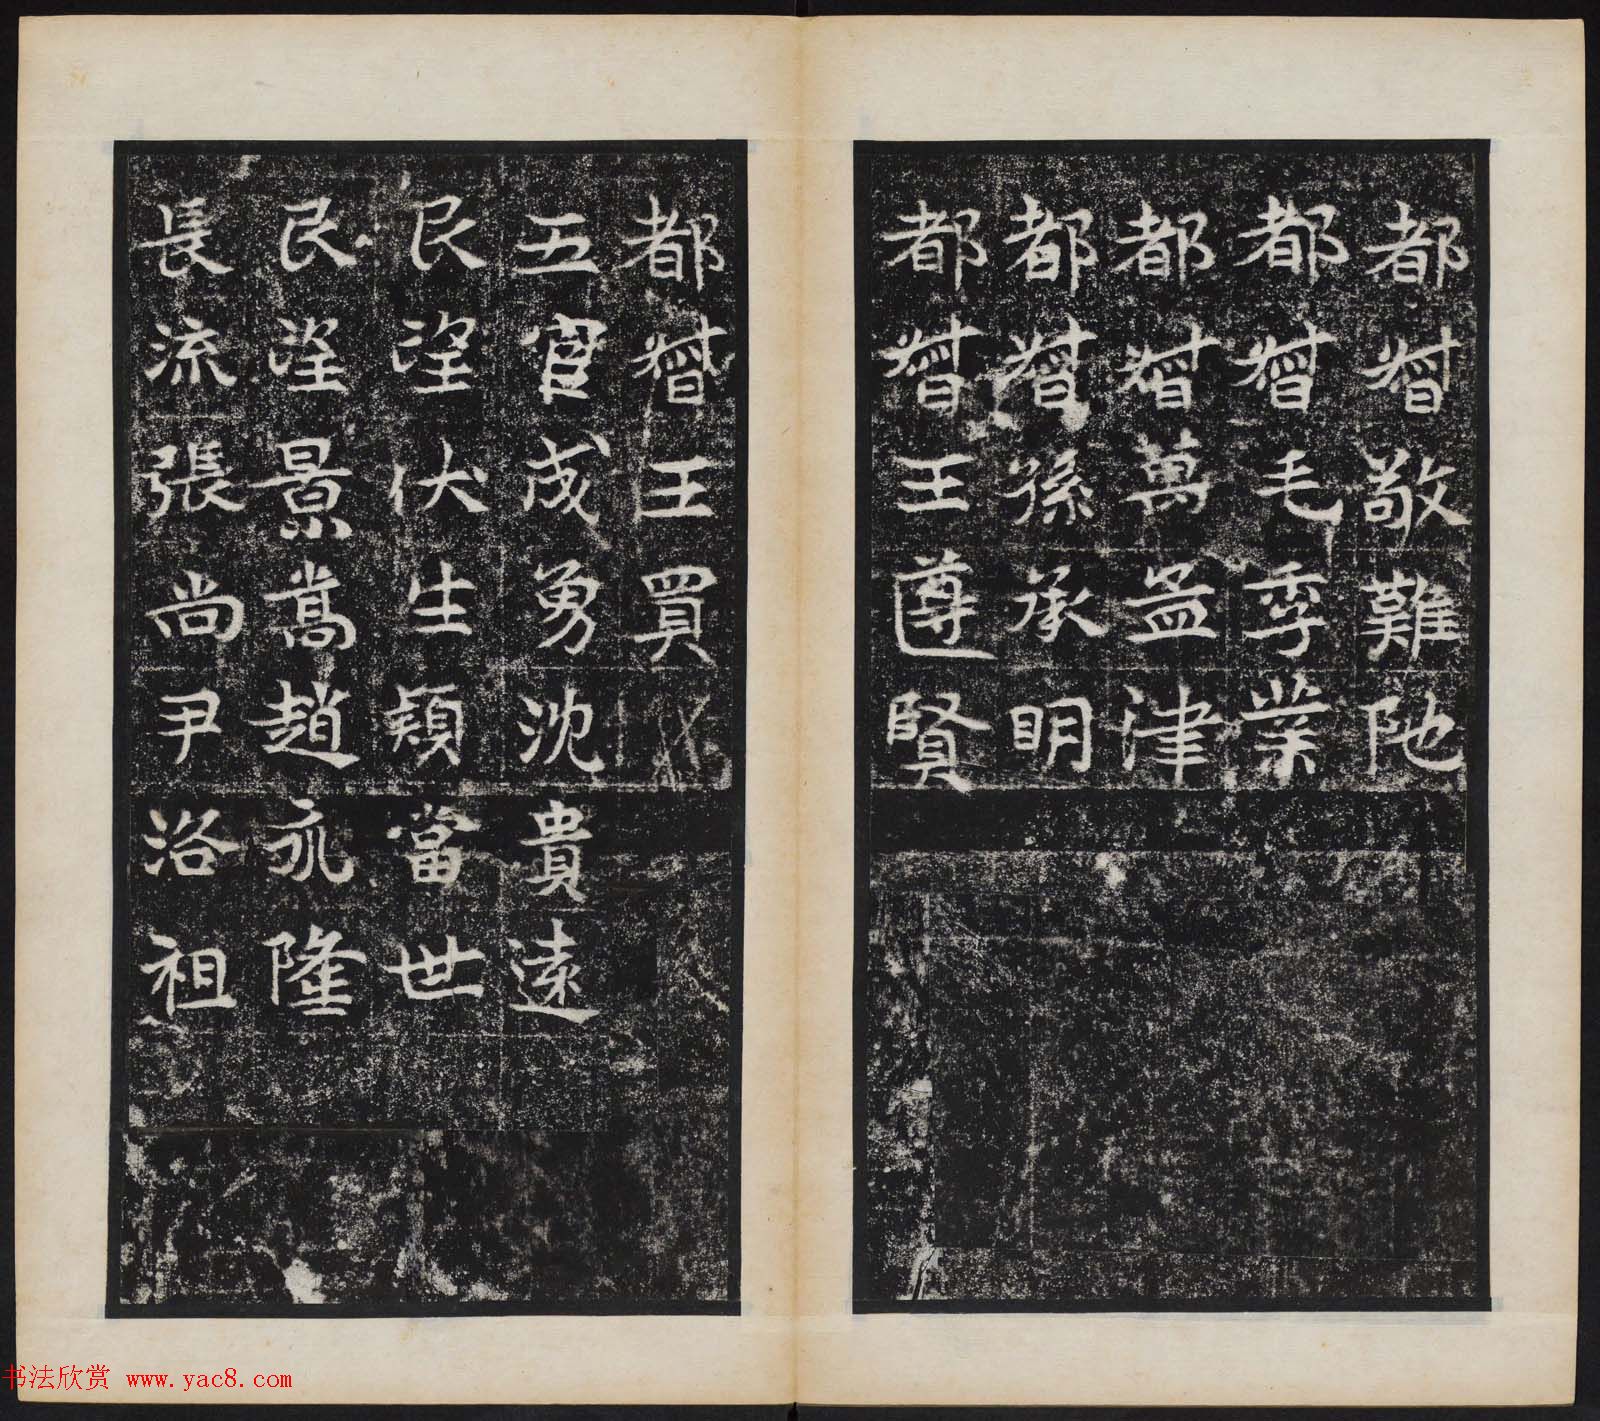 都督敬難陁
都督毛季業
都督萬孟津
都督孫承明
都督王遵賢
都督王買
五官成勇沈貴遠
艮望伏生穎當世
艮望景嵩趙永隆
長流張尚尹洛祖
书法欣赏 www.yac8.com